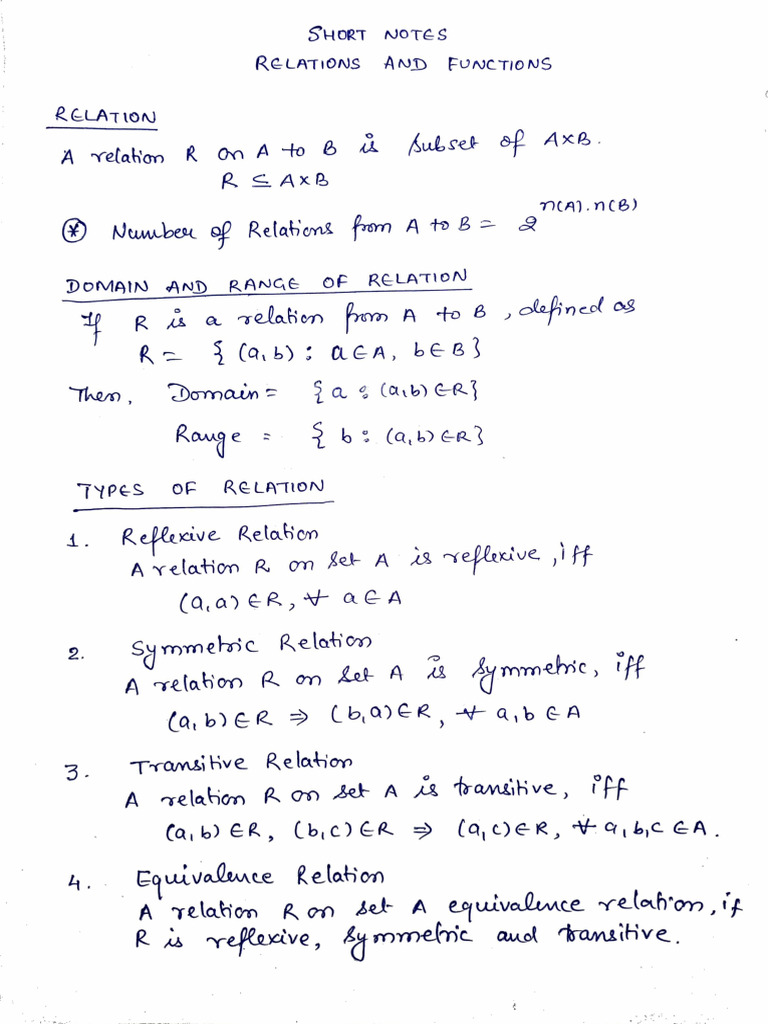 SHORT NOTES
RELATIONS AND FUNCTIONS
RELATION
A relation R on A to B is subset of A×B.
R ⊆ A×B
* Number of Relations from A to B = 2^n(A).n(B)
DOMAIN AND RANGE OF RELATION
If R is a relation from A to B, defined as
R = {(a,b) : a∈A, b∈B}
Then, Domain = {a : (a,b)∈R}
Range = {b : (a,b)∈R}
TYPES OF RELATION
1. Reflexive Relation
A relation R on set A is reflexive, iff
(a,a)∈R, ∀ a∈A
2. Symmetric Relation
A relation R on set A is symmetric, iff
(a,b)∈R ⇒ (b,a)∈R, ∀ a,b∈A
3. Transitive Relation
A relation R on set A is transitive, iff
(a,b)∈R, (b,c)∈R ⇒ (a,c)∈R, ∀ a,b,c∈A.
4. Equivalence Relation
A relation R on set A equivalence relation, if
R is reflexive, symmetric and transitive.